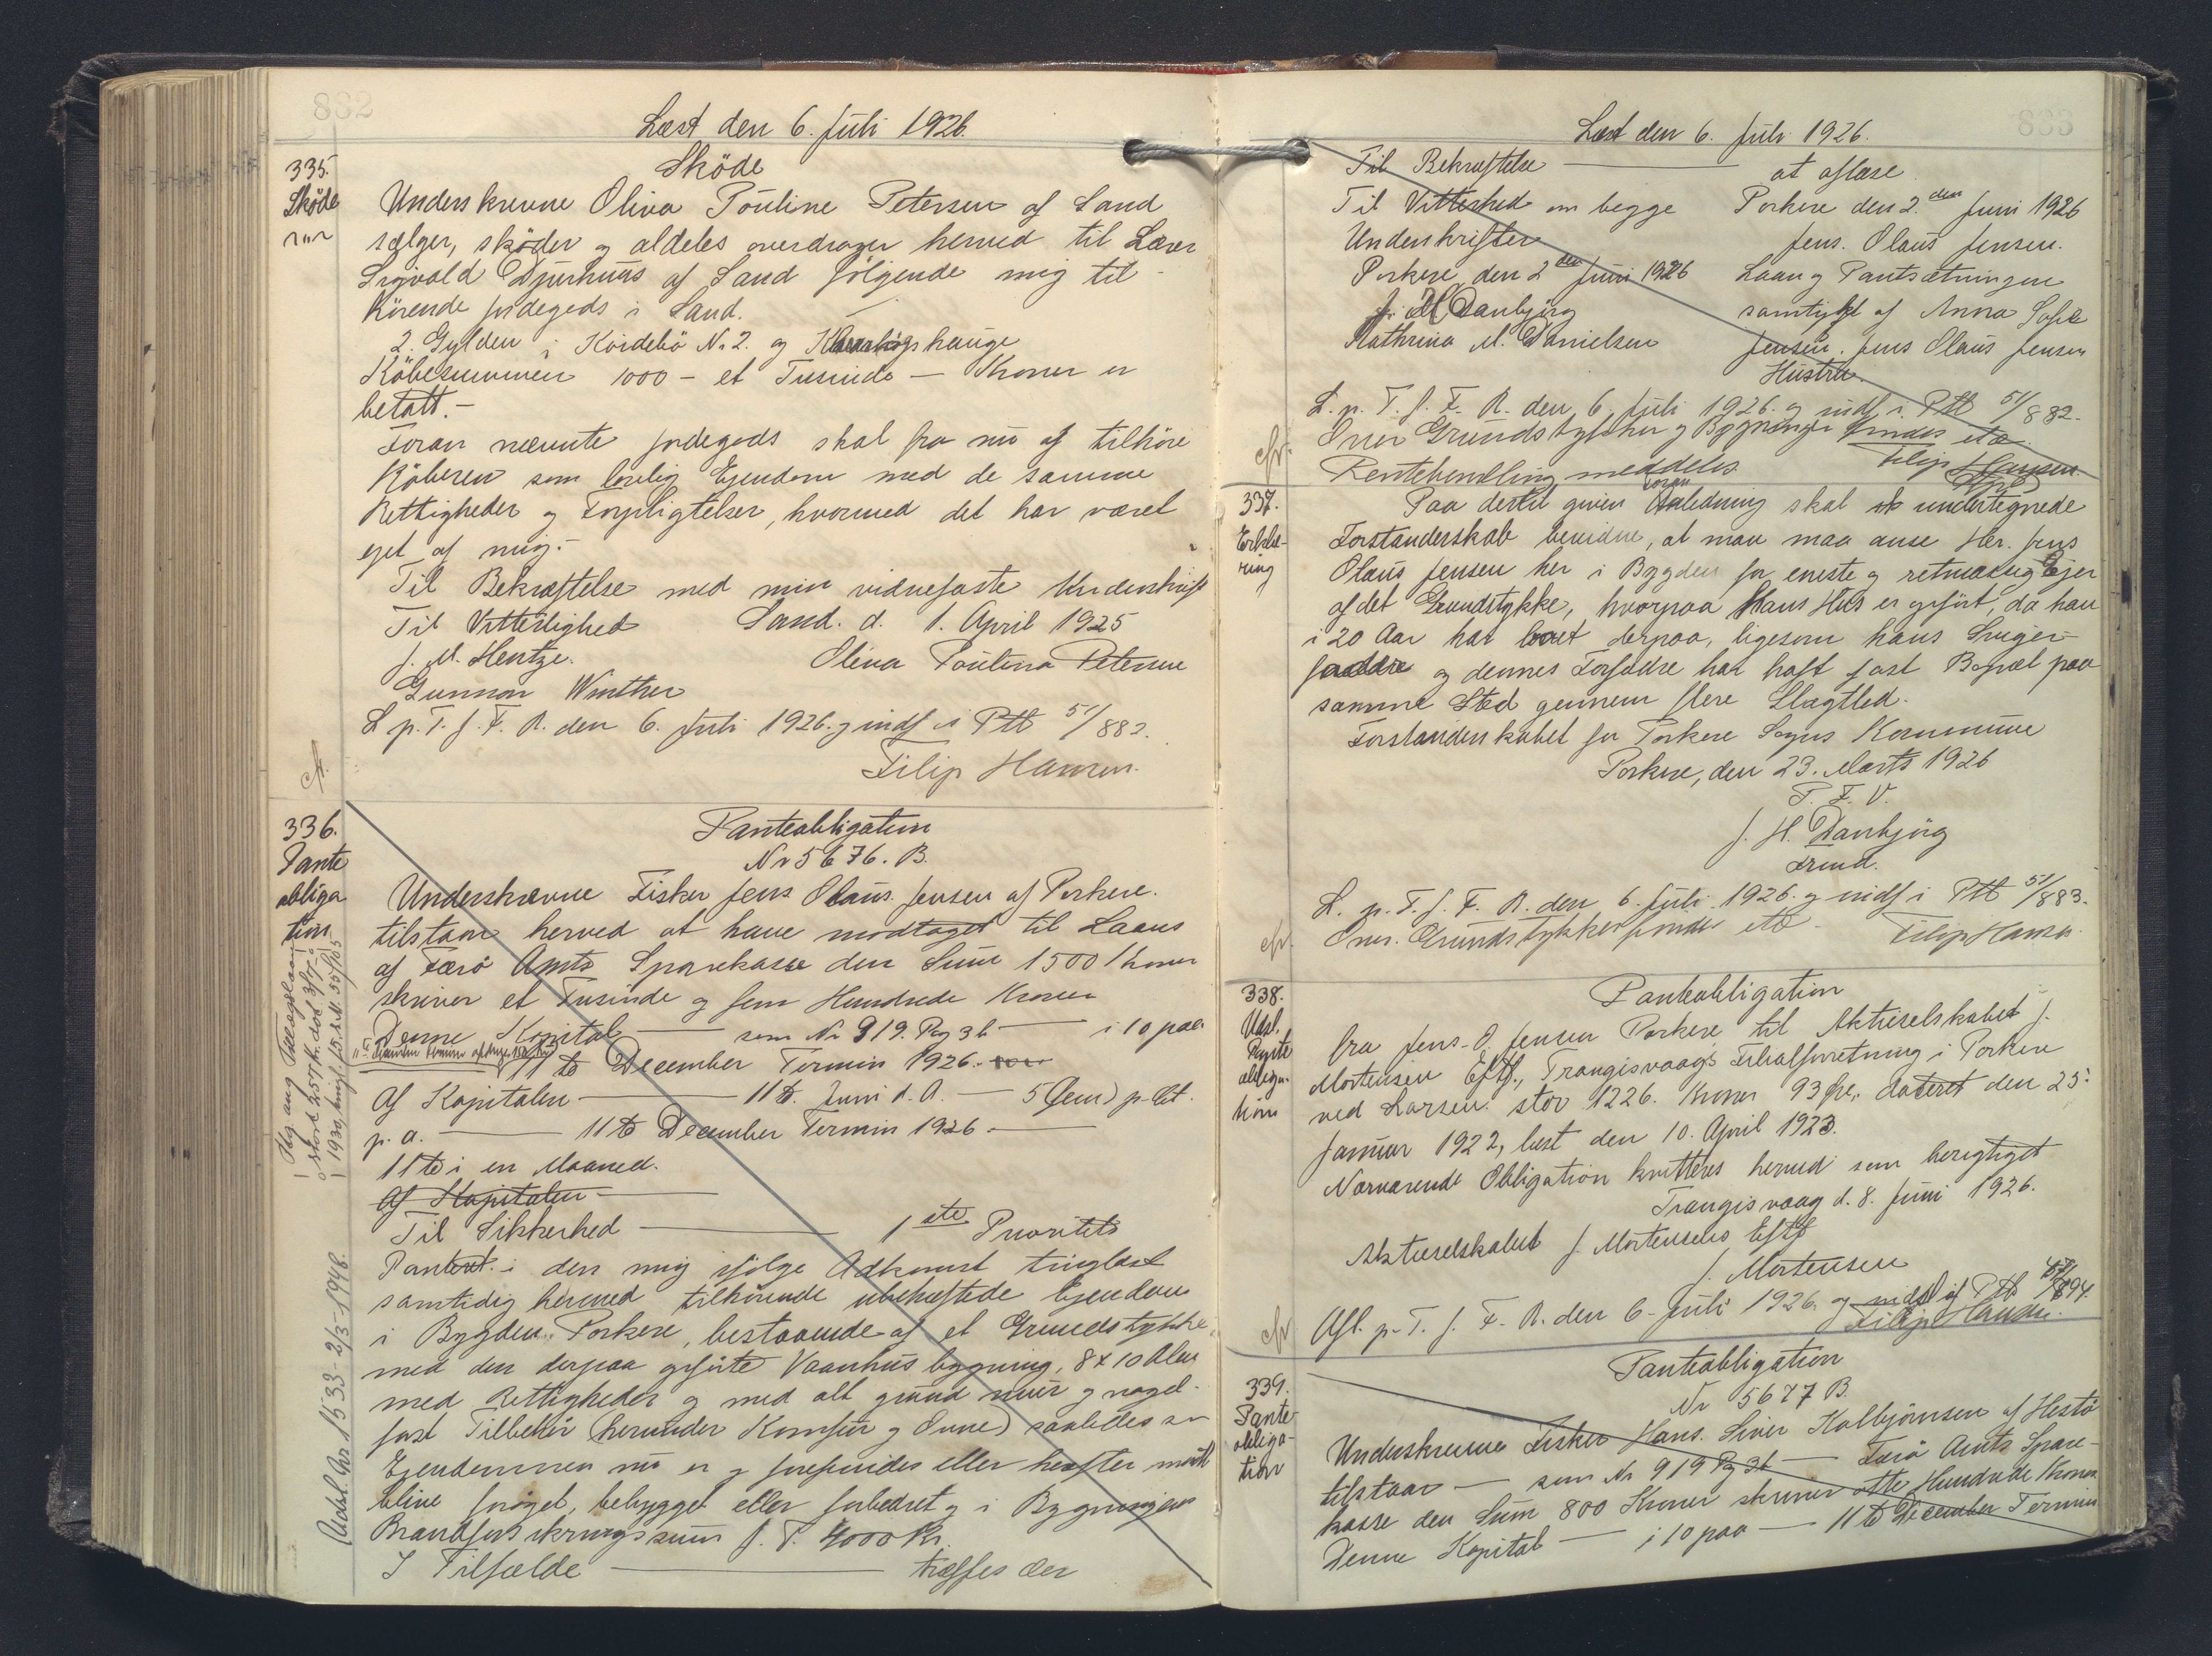 882
Læst den 6. Juli 1926
335.
Sköde
Sköde
Underskrevne Oliva Pouline Petersen af Sand
sælger, sköder og aldeles overdrager herved til Lærer
Sigvald Djurhuus af Sand fölgende mig til-
hörende jordegods i Sand.
2 Gylden i Koidebö No 2. og
Köbesummen 1000 - et Tusinde - Kroner er
betalt.-
Foran nævnte jordegods skal fra nu af tilhöre
Köberen som lovlig Ejendom med de samme
Rettigheder og Forpligtelser, hvormed det har været
ejet af mig.-
Til Bekræftelse med min vidnefaste Underskrift
Til Vitterlighed Sand. d. 1. April 1925
J. M. Hentze. Oliva Poulina Petersen
Gunnar Winther
L. p. T. f. F. R. den 6. Juli 1926. og indf. i Ptb 51/882.
Filip Hansen.
cfr.
336.
Pante
obliga
tion
Panteobligation
Nr 5676. B.
Underskrevne Fisker Jens Olaus Jensen af Porkere.
tilstaar herved at have modtaget til Laans
af Færö Amts Sparekasse den Sum 1500 Kroner
skriver et Tusinde og fem Hundrede Kroner
Denne Kapital — som No 919. Pag 36 — i 10 paa
11te December Termin 1926.
Af Kapitalen — 11te Juni d. A. — 5 (fem) p. Ct.
p. a. — 11te December Termin 1926 —
11te i en Maaned.
Af Kapitalen —
Til Sikkerhed — 1ste Prioritets
Panteret i den mig ifölge Adkomst tinglæst
samtidig hermed tilhörende ubehæftede Ejendom
i Bygden Porkere, bestaaende af et Grundstykke
med den derpaa opförte Vaanhus bygning, 8 x 10 Alen
med Rettigheder og med alt grund mur og nagel-
fast Tilbehör (herunder Komfur og Ovne) saaledes som
Ejendommen nu er og forefindes eller herefter maatte
blive foröget, bebygget eller forbedret og i Bygningens
Brandforsikringssum f. T. 4000 Kr.
I Tilfælde — træffes der
Udsl. Nr 1533 - 2/3 - 1948.
883
Læst den 6. Juli 1926.
Til Bekræftelse — at aflæse
Til Vitterhed om begge Porkere den 2. den Juni 1926
Underskrifter Jens. Olaus Jensen.
Porkere, den 2 den Juni 1926 Laan og Pantsætningen
J. H. Danbjörg samtykt af Anna Sofie
Kathrina M. Danielsen Jensen. Jens Olaus Jensen
Hustru.
L. p. T. f. F. R. den 6. Juli 1926. og indf. i Ptb 51/882.
Over Grundstykker og Bygninger findes ete
cfr. Rentebemelling meddeles. Filip Hansen.
337.
Erklæ-
ring
Paa dertil given Anledning skal undertegnede
Forstanderskab bevidne, at man maa anse Hr. Jens
Olaus Jensen her i Bygden for eneste og retmæssig Ejer
af det Grundstykke, hvorpaa Hans Hus er opfört, da han
i 20 Aar har boet derpaa, ligesom hans Sviger-
fadder og dennes Forfædre har haft fast Bopæl paa
samme Sted gennem flere Slagtled.
Forstanderskabet for Porkere Sogns Kommune
Porkere, den 23. Marts 1926
P. F. V.
J. H. Danbjörg
Fmd.
L. p. T. f. F. R. den 6. Juli 1926. og indf. i Ptb 51/883.
cfr. Over Grundstykker findes ete Filip Hansen.
338.
Udsl.
Pante
obliga-
tion
Panteobligation
fra Jens. O. Jensen Porkere til Aktieselskabet J.
Mortensen Eftf., Trangisvaags Filialforretning i Porkere
ved Larsen. stor 1226. Kroner 93 Öre, dateret den 25.
Januar 1922, læst den 10. April 1923.
Nærværende Obligation kvitteres herved som berigtiget
Trangisvaag d. 8. Juni 1926.
Aktieselskabet J. Mortensens Eftf
J. Mortensen
cfr Afl. p. T. f. F. R. den 6. Juli 1926. og indf. i Ptb
Filip Hansen.
339.
Pante-
obliga-
tion
Panteobligation
Nr 5677 B.
Underskrevne Fisker Hans. Siver Kolbjörnsen af Hestö
tilstaar — som No 919 Pag 36 — Færö Amts Spare-
kasse den Sum 800 Kroner skriver otte Hundrede Kroner
Denne Kapital — i 10 paa — 11te December Termin